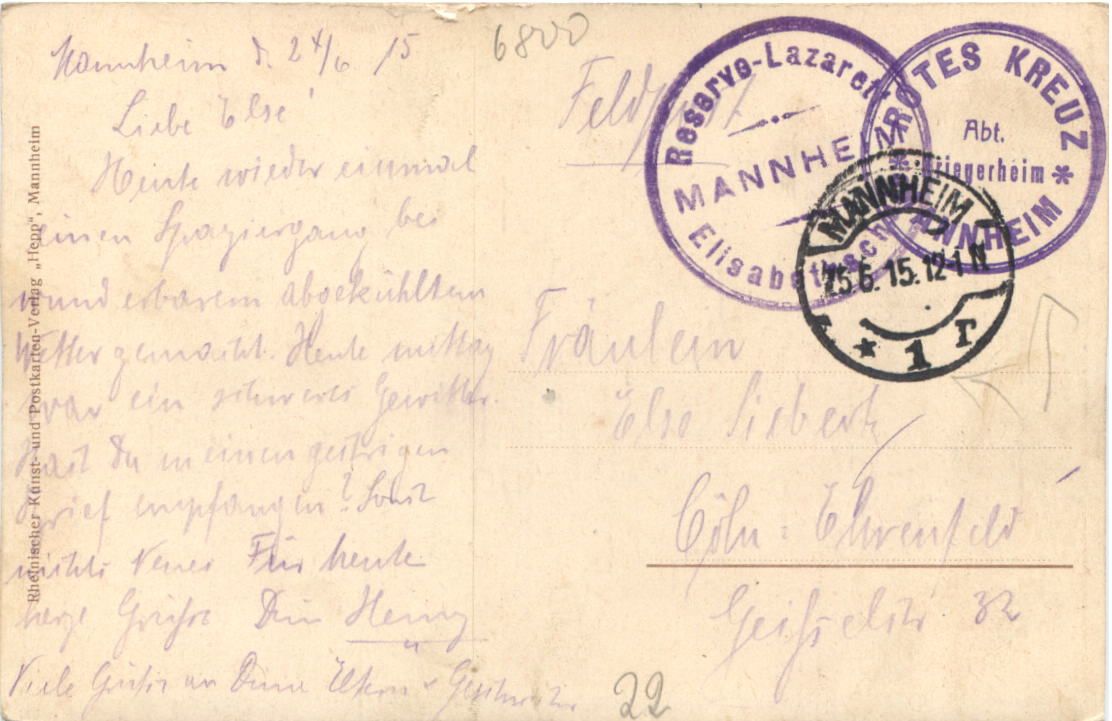 Mannheim d. 24/6 15
Liebe Else!
Heute wieder einmal
einen Spaziergang bei
wunderbarem abgekühltem
Wetter gemacht. Heute mittag
war ein schweres Gewitter.
Hast Du meinen gestrigen
Brief empfangen? Sonst
nichts Neues Für heute
herzl Grüße Dein Henry
Viele Grüße an Deine Eltern u Geschwister
Rheinischer Kunst- und Postkarten-Verlag „Hepp“, Mannheim
6800
Feldpost
Reserve-Lazarett
MANNHEIM
ROTES KREUZ
Abt.
Kriegerheim
MANNHEIM
MANNHEIM
25.6.15.12-1 N
* 1 r
Fräulein
Else Siebertz
Cöln-Ehrenfeld
Geisselstr 32
22